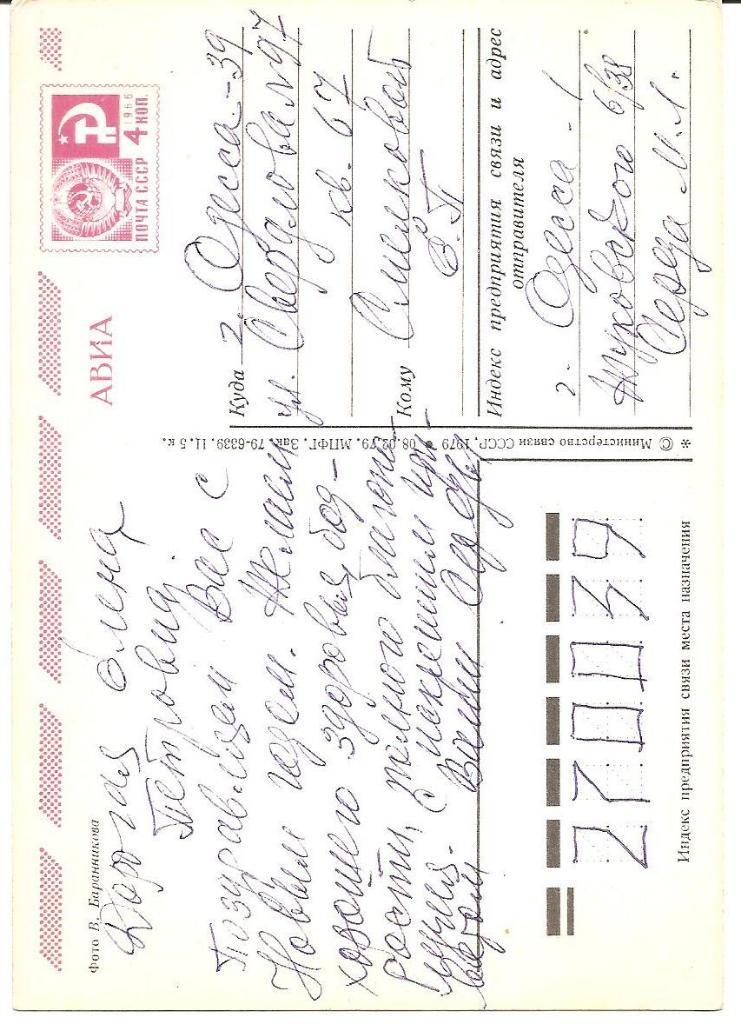 Фото В. Баранникова
Дорогая Елена
Петровна
Поздравляем Вас с
Новым годом. Желаем
хорошего здоровья, бод-
рости, полного благопо-
лучия. С искренним при-
ветом Ваши
АВИА
1966
4 КОП.
ПОЧТА СССР
Куда г. Одесса-39
ул. Свердлова №97
кв. 67
Кому Смилковой
Е. П.
Индекс предприятия связи и адрес
отправителя
г. Одесса-1
Жуковского 6/38
Середа М. Л.
* © Министерство связи СССР, 1979 * 08.02.79. МПФГ. Зак. 79-6339. 11. 5 к.
270039
Индекс предприятия связи места назначения